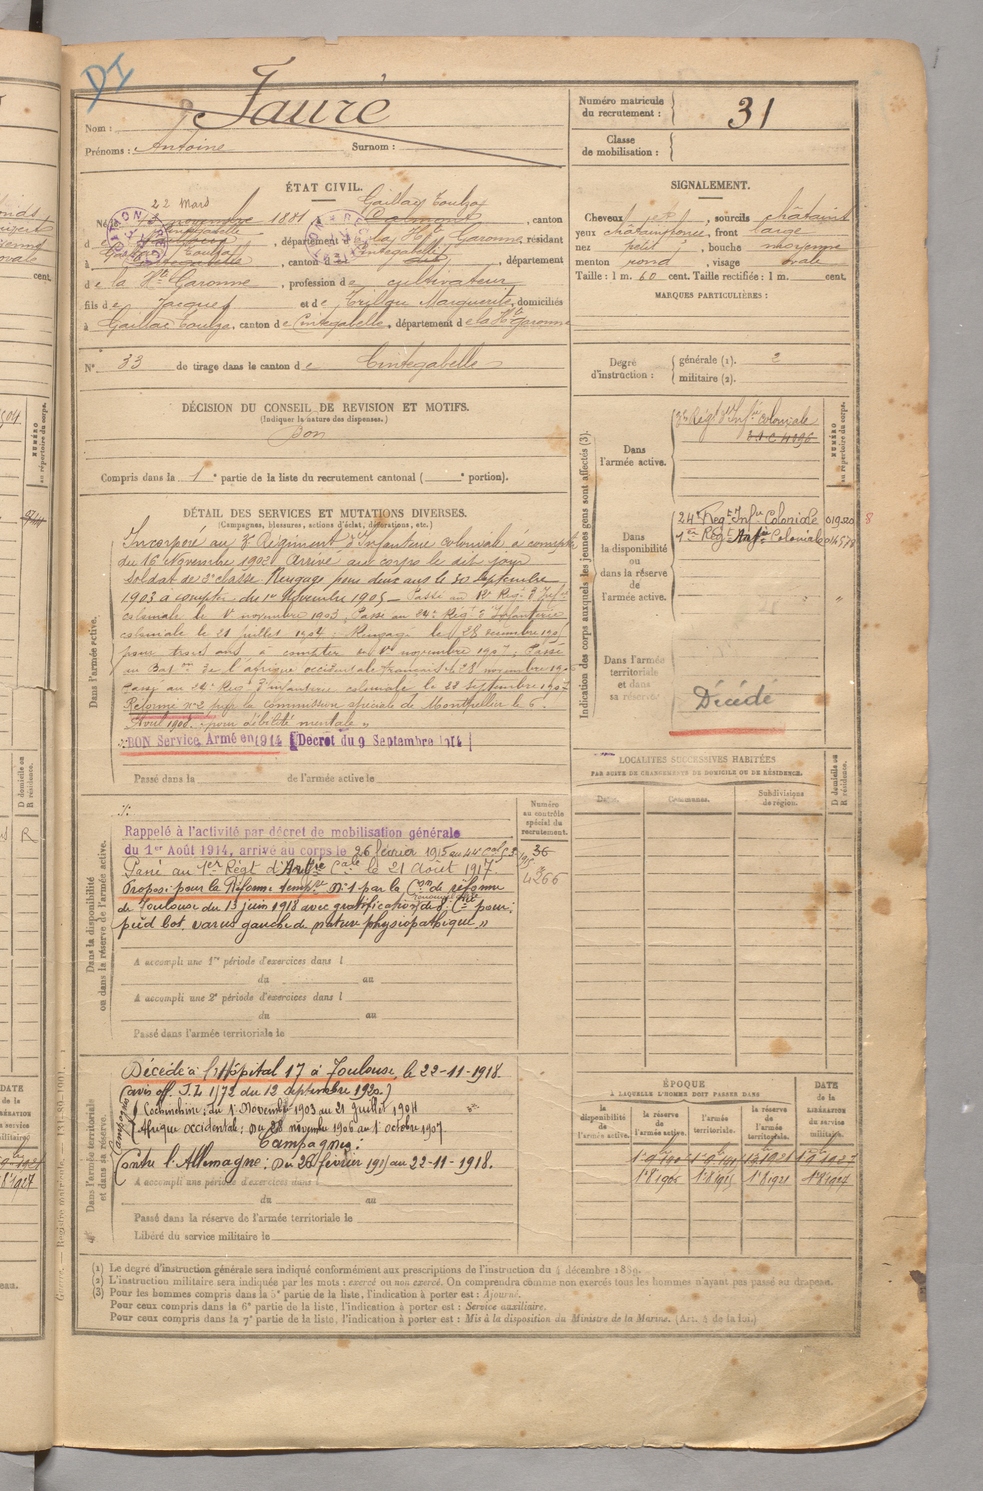 DI
Fauré
Nom :
Prénoms : Antoine Surnom :
Numéro matricule du recrutement : 31
Classe de mobilisation :
ÉTAT CIVIL.
22 Mars Gaillac Toulza
Né novembre 1881 Calmont, canton
d Cintegabelle, département de la Hte Garonne, résidant
à Gaillac Toulza, canton d Cintegabelle, département
de la Hte Garonne, profession de cultivateur
fils de Jacques et de Marguerite, domiciliés
à Gaillac Toulza, canton de Cintegabelle, département de la Hte Garonne
N° 33 de tirage dans le canton de Cintegabelle
SIGNALEMENT.
Cheveux, sourcils châtains
yeux, front large
nez petit, bouche moyenne
menton rond, visage ovale
Taille : 1 m. 60 cent. Taille rectifiée : 1 m. cent.
MARQUES PARTICULIÈRES :
Degré d'instruction : générale (1). 2
militaire (2).
DÉCISION DU CONSEIL DE REVISION ET MOTIFS.
(Indiquer la nature des dispenses.)
Bon
Compris dans la 1e partie de la liste du recrutement cantonal ( e portion).
DÉTAIL DES SERVICES ET MUTATIONS DIVERSES.
(Campagnes, blessures, actions d'éclat, décorations, etc.)
Dans l'armée active.
Incorporé au 3e Régiment d'Infanterie coloniale à compter
du 16 Novembre 1902 Arrivé au corps le dit jour
soldat de 2e classe Rengagé pour deux ans le 30 Septembre
1903 à compter du 1er Novembre 1905 Passé au Reg. d'Infie
coloniale le 1er novembre 1903. Passé au 24e Reg. d'Infanterie
coloniale le 21 juillet 1904. Rengagé le 28 décembre
pour trois ans à compter du 1er novembre 1907. Passé
au Baton de l'afrique occidentale française le 28 novembre
Passé au 24e Reg. d'infanterie coloniale le 28 septembre 1907
Réformé n°2 par la Commission spéciale de Montpellier le 6
Avril 1908. pour débilité mentale "
BON Service Armé en 1914 Décret du 9 Septembre 1914
Passé dans la de l'armée active le
Indication des corps auxquels les jeunes gens sont affectés (3).
NUMÉRO au répertoire du corps.
Dans l'armée active.
3e Régt d'Infie coloniale
Dans la disponibilité ou dans la réserve de l'armée active.
24e Régt Infie Coloniale 019520
1er Rég. Artie Coloniale 014578
Dans l'armée territoriale et dans sa réserve.
Décédé
LOCALITÉS SUCCESSIVES HABITÉES
PAR SUITE DE CHANGEMENTS DE DOMICILE OU DE RÉSIDENCE.
Dates. Communes. Subdivisions de région. D domicile ou R résidence.
Dans la disponibilité ou dans la réserve de l'armée active.
Numéro au contrôle spécial du recrutement.
Rappelé à l'activité par décret de mobilisation générale
du 1er Août 1914, arrivé au corps le 26 février 1915 au 44e col
36
4266
Passé au 1er Régt d'Artie Cale le 21 Août 1917.
Proposé pour la Réforme tempre n°1 par la Con de réforme
de Toulouse du 13 juin 1918 avec gratification de 8e Cie pour :
pied bot varus gauche de nature physiopathique "
A accompli une 1re période d'exercices dans l
du au
A accompli une 2e période d'exercices dans l
du au
Passé dans l'armée territoriale le
Dans l'armée territoriale et dans sa réserve.
Décédé à l'Hôpital 17 à Toulouse, le 22-11-1918.
(avis off. J.L 1/72 du 12 septembre 1920)
Campagnes
Cochinchine : du 1er Novembre 1903 au 21 Juillet 1904
Afrique occidentale : Du 28 novembre 1905 au 1er octobre 1907.
Campagnes :
Contre l'Allemagne : Du 26 février 1915 au 22-11-1918.
A accompli une période d'exercices dans l
du au
Passé dans la réserve de l'armée territoriale le
Libéré du service militaire le
ÉPOQUE
À LAQUELLE L'HOMME DOIT PASSER DANS
la disponibilité de l'armée active. la réserve de l'armée active. l'armée territoriale. la réserve de l'armée territoriale.
DATE de la LIBÉRATION du service militaire.
1er 8 1905 1er 8 1915 1er 8 1921 1er 8 1927
(1) Le degré d'instruction générale sera indiqué conformément aux prescriptions de l'instruction du 4 décembre 1889.
(2) L'instruction militaire sera indiquée par les mots : exercé ou non exercé. On comprendra comme non exercés tous les hommes n'ayant pas passé au drapeau.
(3) Pour les hommes compris dans la 5e partie de la liste, l'indication à porter est : Ajourné.
Pour ceux compris dans la 6e partie de la liste, l'indication à porter est : Service auxiliaire.
Pour ceux compris dans la 7e partie de la liste, l'indication à porter est : Mis à la disposition du Ministre de la Marine. (Art. 4 de la loi.)